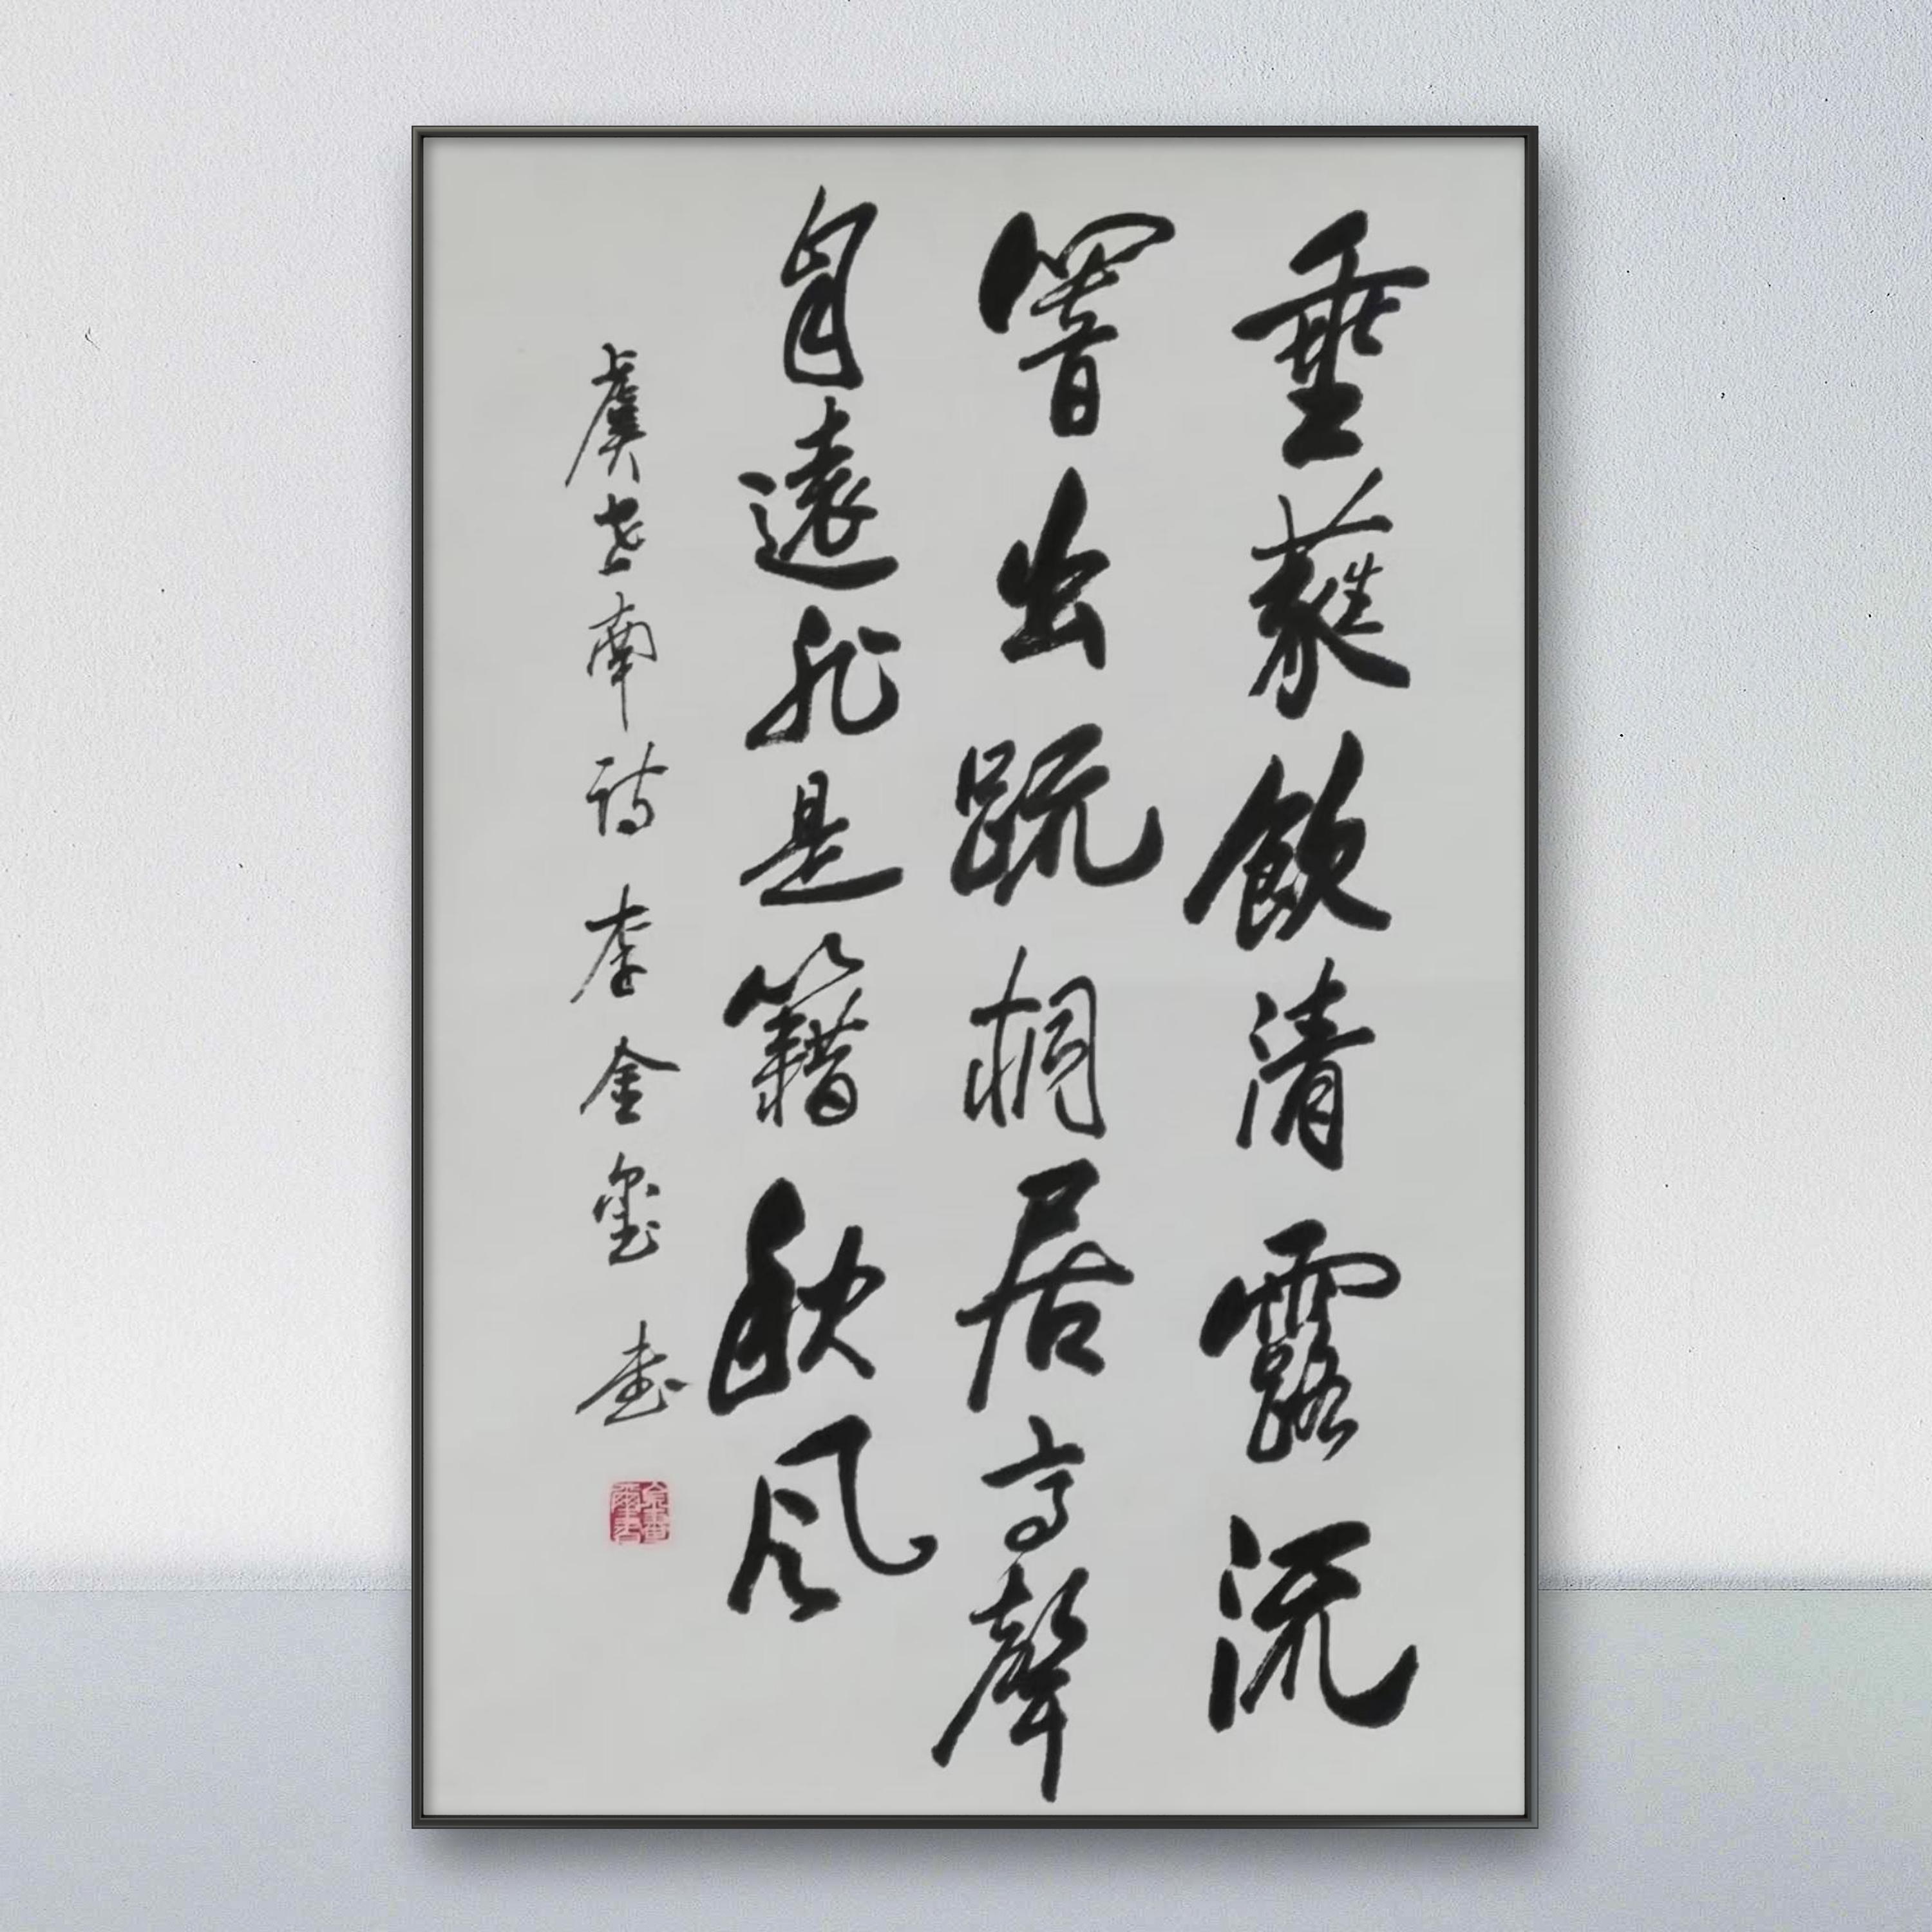 垂蕤飲清露流
響出疏桐居高聲
自遠非是籍秋風
虞世南詩李金璽書